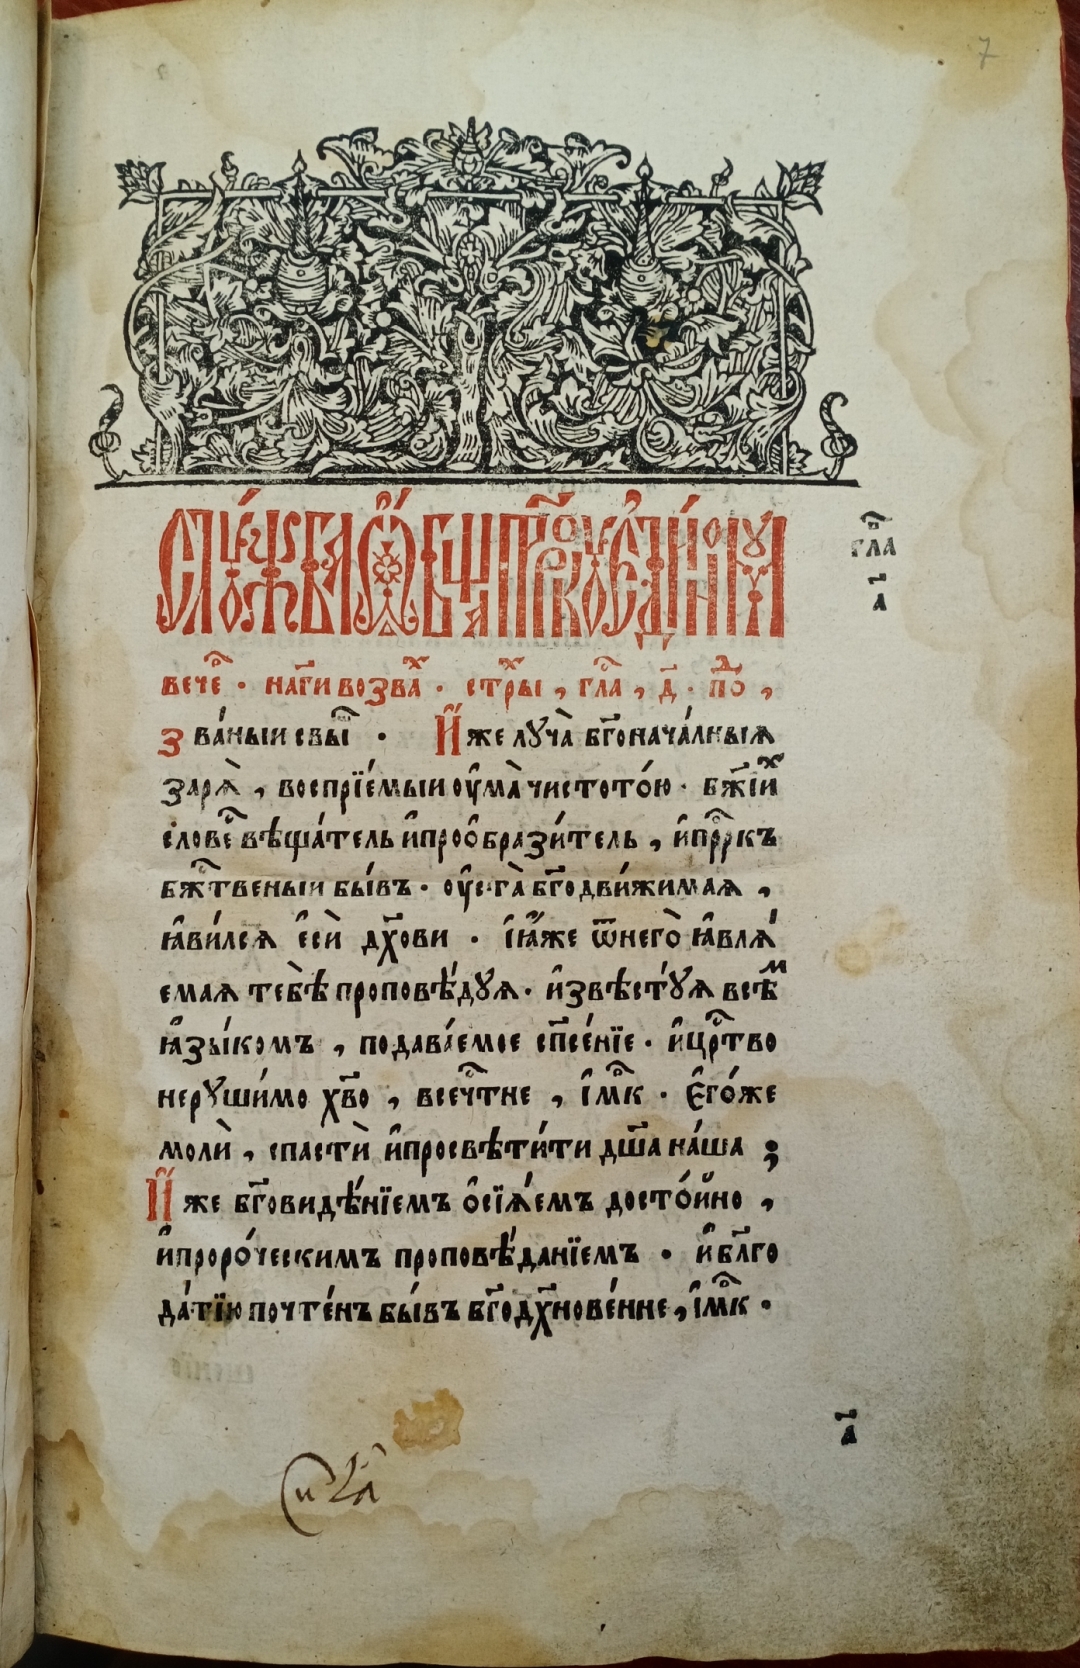 7
СЛУ́ЖБА Ѻ҆́БЩАѦ ПРⷪ҇РКУ Е҆ДИ́НОМУ
гла̑в
а҃
вечеⷬ҇ . на гⷭ҇и возваⷯ . стⷯры , глаⷭ҇ , д҃ . поⷣ ,
зва́ныи свыⷲ҇ . И҆́же луча̀ бг҃онача́лныѧ
зарѧ̀ , воспрїе́мыи ѹ҆ма̀ чистото́ю . бж҃їиⷯ
словеⷭ҇ вѣща́тель и҆ проо҆брази́тель , и҆ прⷪ҇ркъ
бжⷭ҇твеныи бы́въ . ѹ҆ста̀ бг҃одви́жимаѧ ,
ꙗ҆ви́лсѧ є҆сѝ дх҃ови . і҆ ꙗ҆́же ѿ него̀ ꙗ҆влѧ́
емаѧ тебѣ̀ проповѣ́дуѧ . и҆звѣсту́ѧ всѣⷨ
ꙗ҆зы́комъ , подава́емое сп҃се́нїе . и҆ црⷭ҇тво
неруши́мо хв҃о , всечⷭ҇тне , і҆мⷬ҇к . Є҆го́же
молѝ , спастѝ и҆ просвѣти́ти дш҃а на́ша ;
И҆́же бг҃овидѣ́нїемъ ѻ҆сїѧ́емъ досто́йно ,
и҆ проро́ческимъ проповѣ́данїемъ . и҆ бл҃го
да́тїю почте́нъ бы́въ бг҃одх҃нове́нне , і҆мⷬ҇к .
а҃